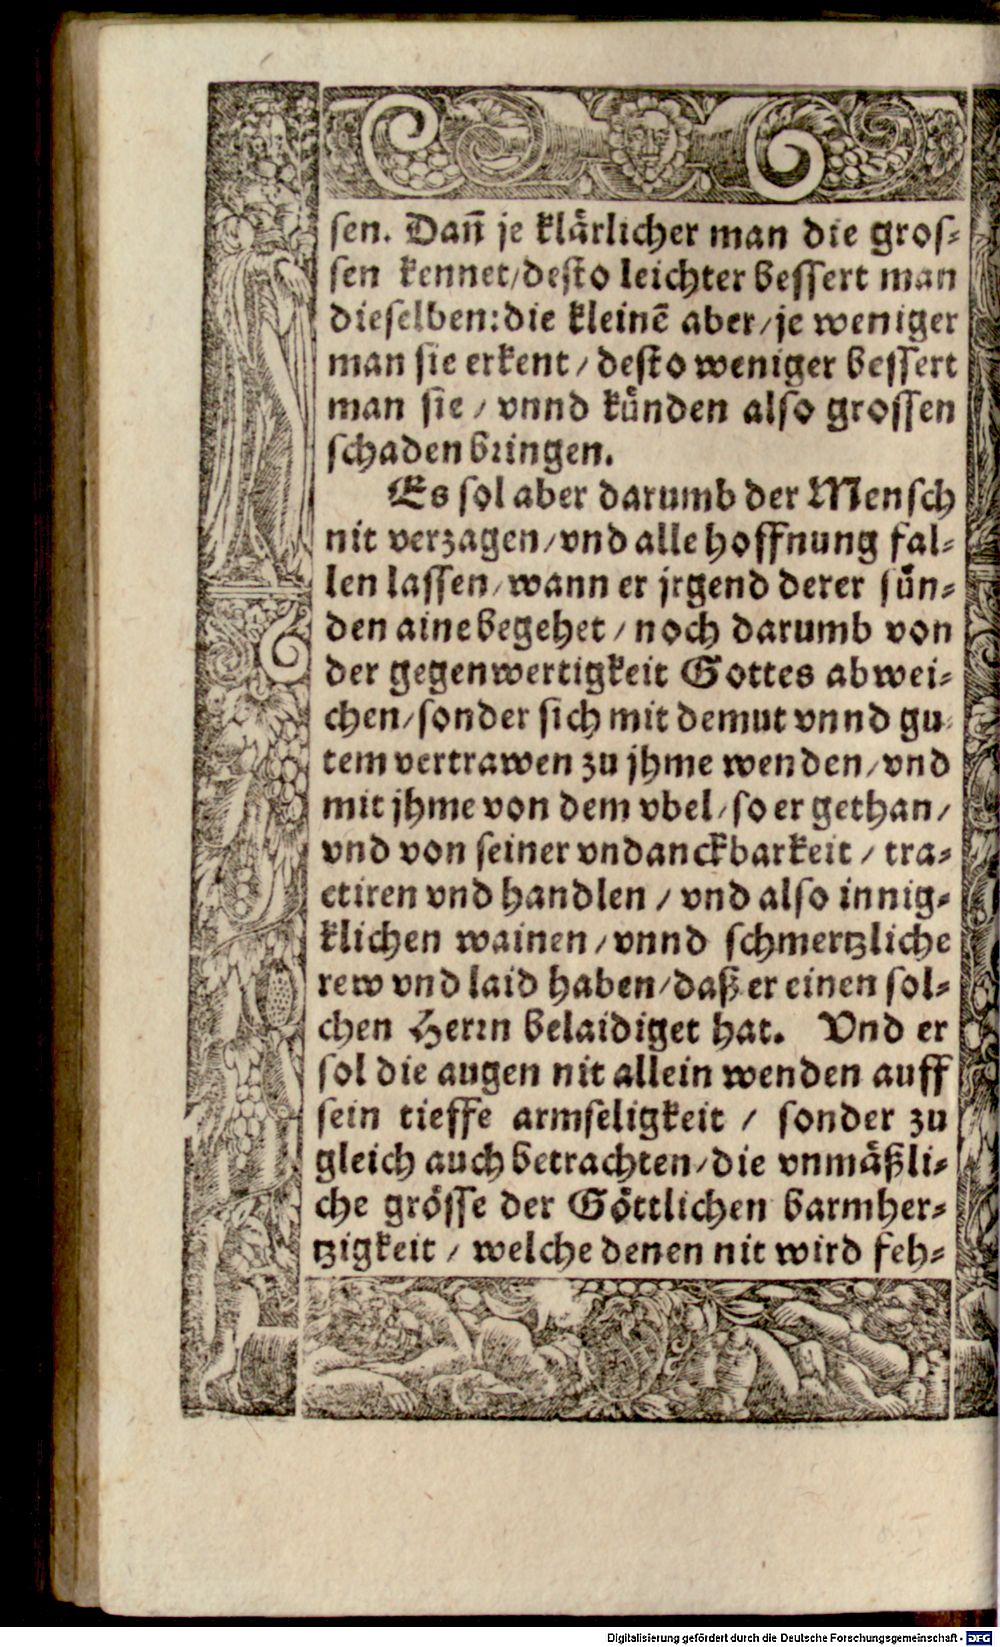 sen. Dañ je klärlicher man die gros⸗
sen kennet/desto leichter bessert man
dieselben:die kleinē aber/je weniger
man sie erkent/desto weniger bessert
man sie/vnnd künden also grossen
schaden bringen.
Es sol aber darumb der Mensch
nit verzagen/vnd alle hoffnung fal⸗
len lassen/wann er jrgend derer sün⸗
den aine begehet/noch darumb von
der gegenwertigkeit Gottes abwei⸗
chen/sonder sich mit demut vnnd gu⸗
tem vertrawen zu jhme wenden/vnd
mit jhme von dem vbel/so er gethan/
vnd von seiner vndanckbarkeit/tra⸗
ctiren vnd handlen/vnd also innig⸗
klichen wainen/vnnd schmertzliche
rew vnd laid haben/daß er einen sol⸗
chen Herrn belaidiget hat. Vnd er
sol die augen nit allein wenden auff
sein tieffe armseligkeit/sonder zu
gleich auch betrachten/die vnmäßli⸗
che grösse der Göttlichen barmher⸗
tzigkeit/welche denen nit wird feh⸗
Digitalisierung gefördert durch die Deutsche Forschungsgemeinschaft - DFG